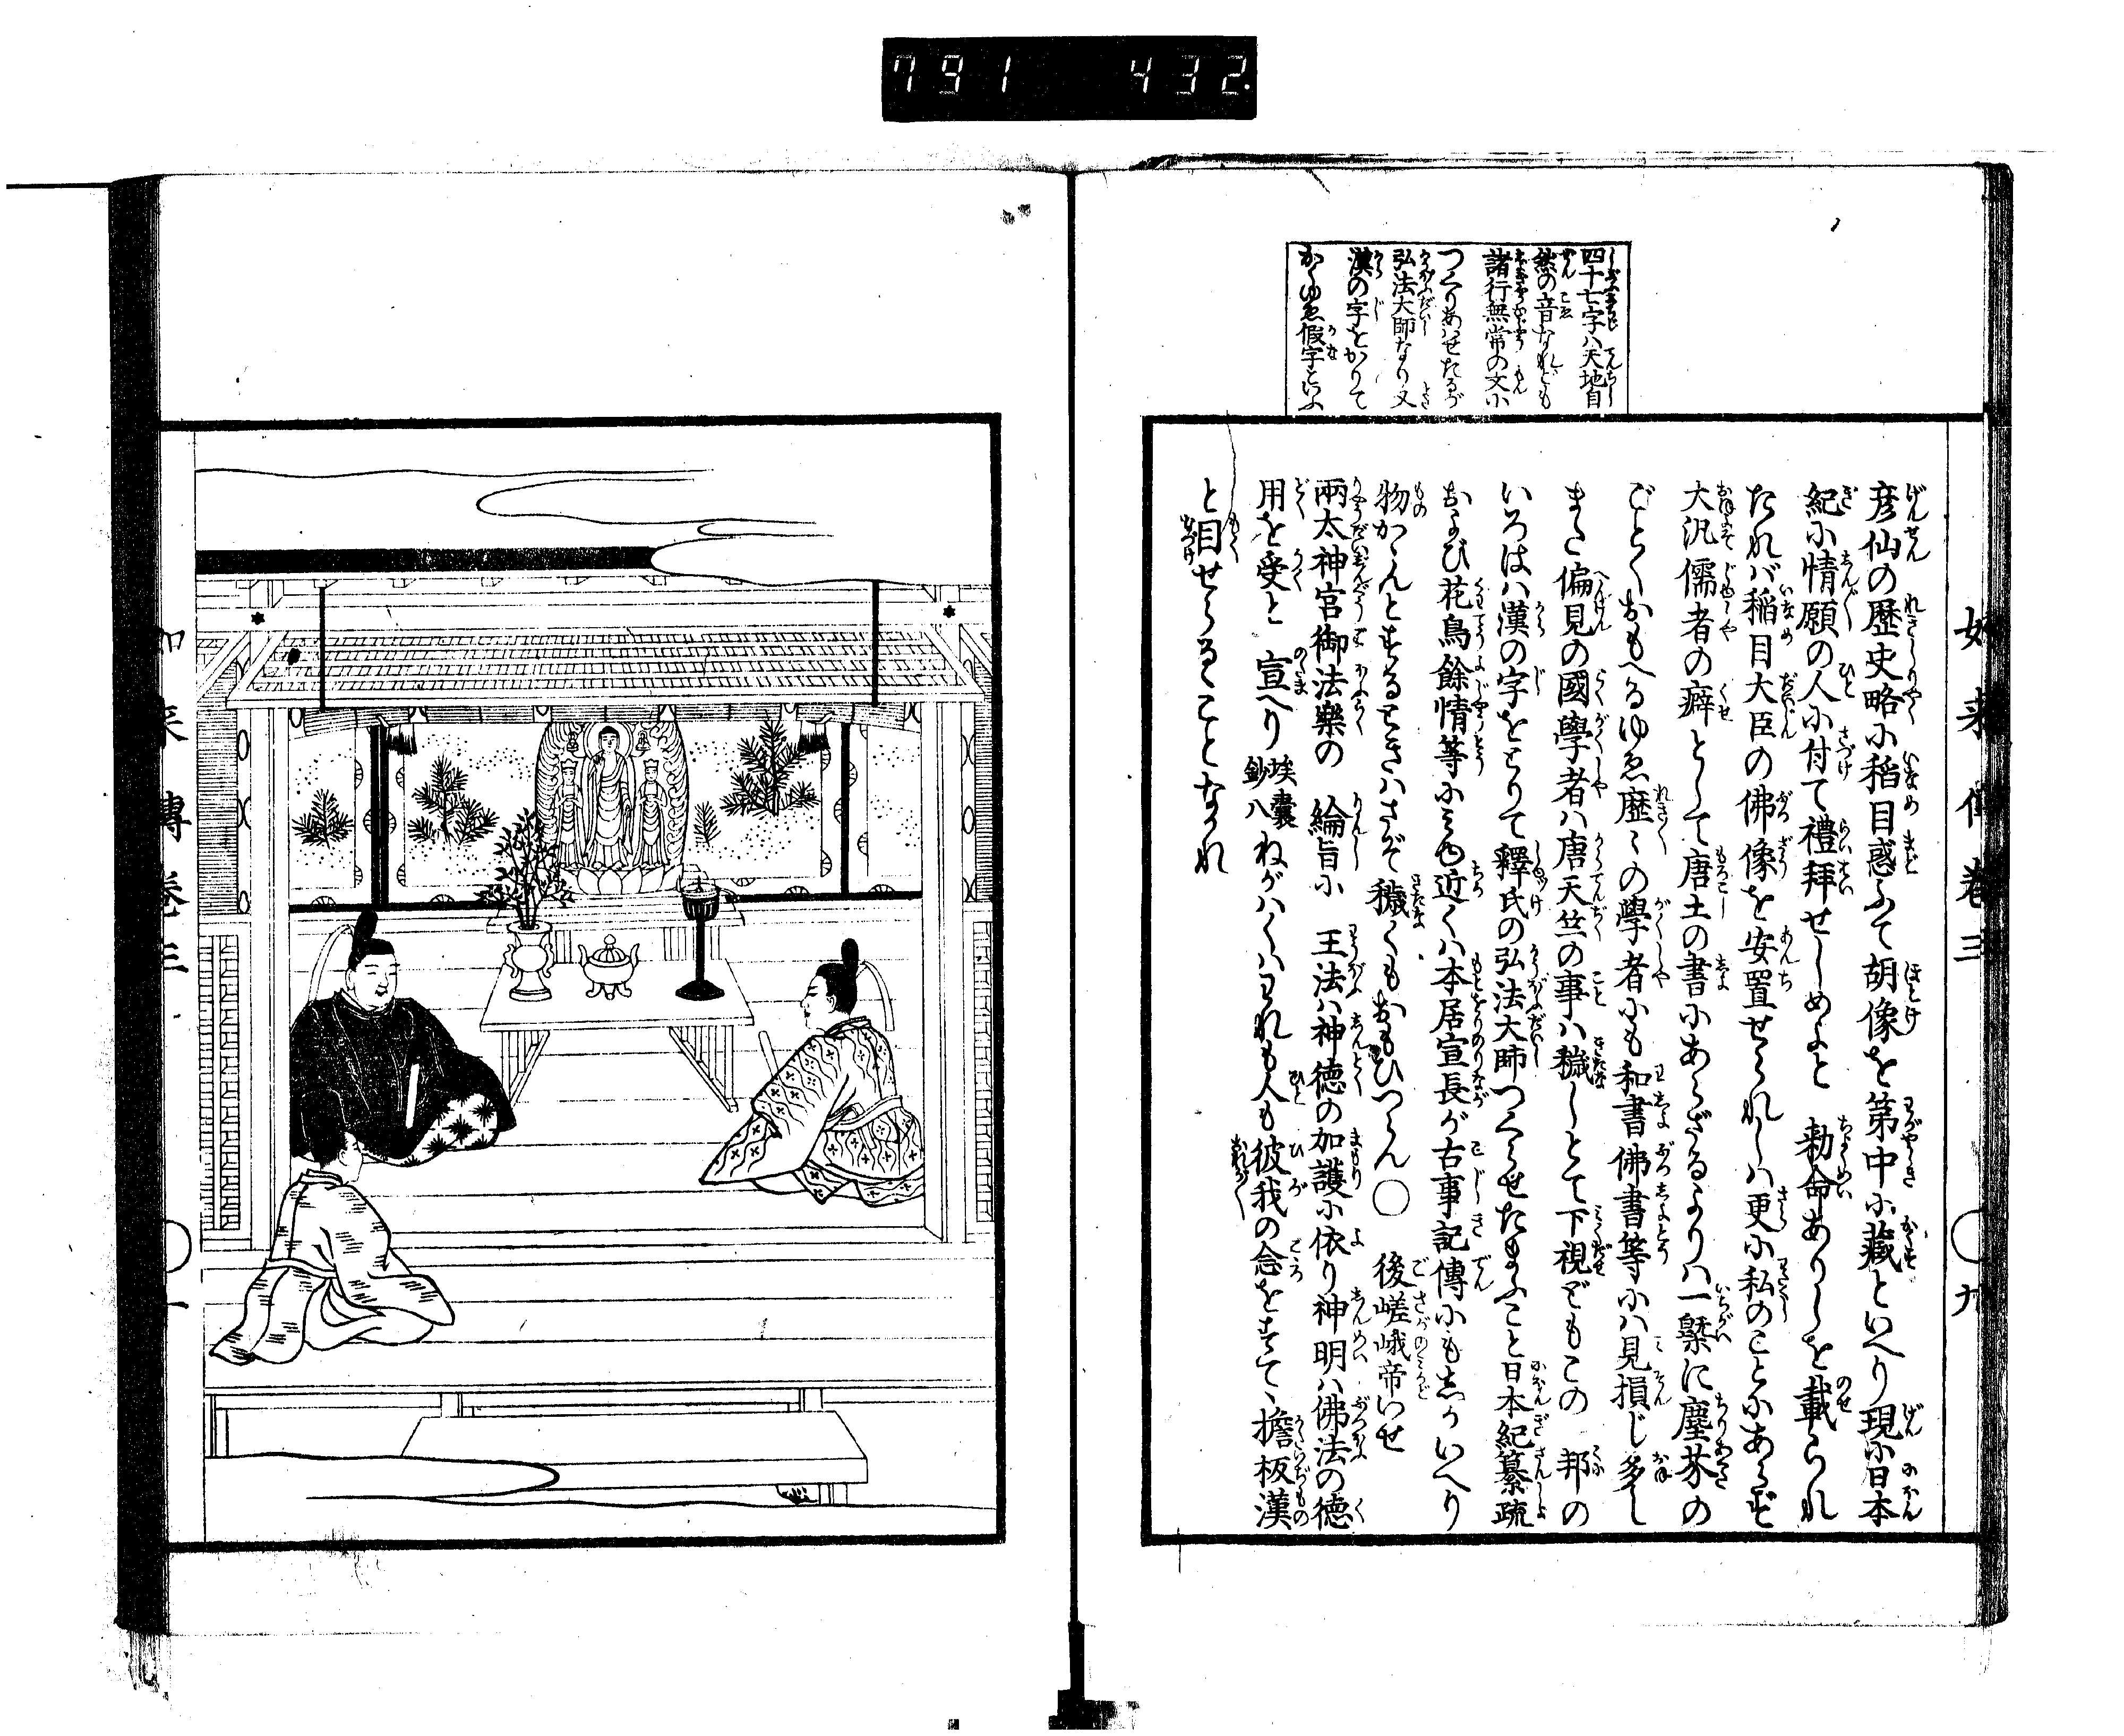 791 432.
四十七字ハ天地自
然の音なれども
諸行無常の文に
つくりあはせたるが
弘法大師なり又
漢の字をかりて
かくゆゑ假字といふ
如来傳巻三 ○九
彦仙の歴史略に稲目惑ふて胡像を第中に藏といへり現に日本
紀に情願の人に付て禮拜せしめよと 勅命ありしを載られ
たれバ稲目大臣の佛像を安置せられしハ更に私のことにあらず
大汎儒者の癖として唐土の書にあらざるよりハ一槩に塵芥の
ごとくおもへるゆゑ歴々の學者にも和書佛書等にハ見損じ多し
また偏見の國學者ハ唐天竺の事ハ穢しとて下視どもこの 邦の
いろはハ漢の字をとりて釋氏の弘法大師つくらせたまふこと日本紀纂疏
および花鳥餘情等にみゆ近くハ本居宣長が古事記傳にもしかいへり
物かゝんとするときハさぞ穢くもおもひつらん○ 後嵯峨帝いせ
兩太神宮御法樂の 綸旨に 王法ハ神徳の加護に依り神明ハ佛法の徳
用を受と 宣へり埃囊鈔八ねがハくハわれも人も彼我の念をすて、擔板漢
と目せらるゝことなかれ
如来傳巻三